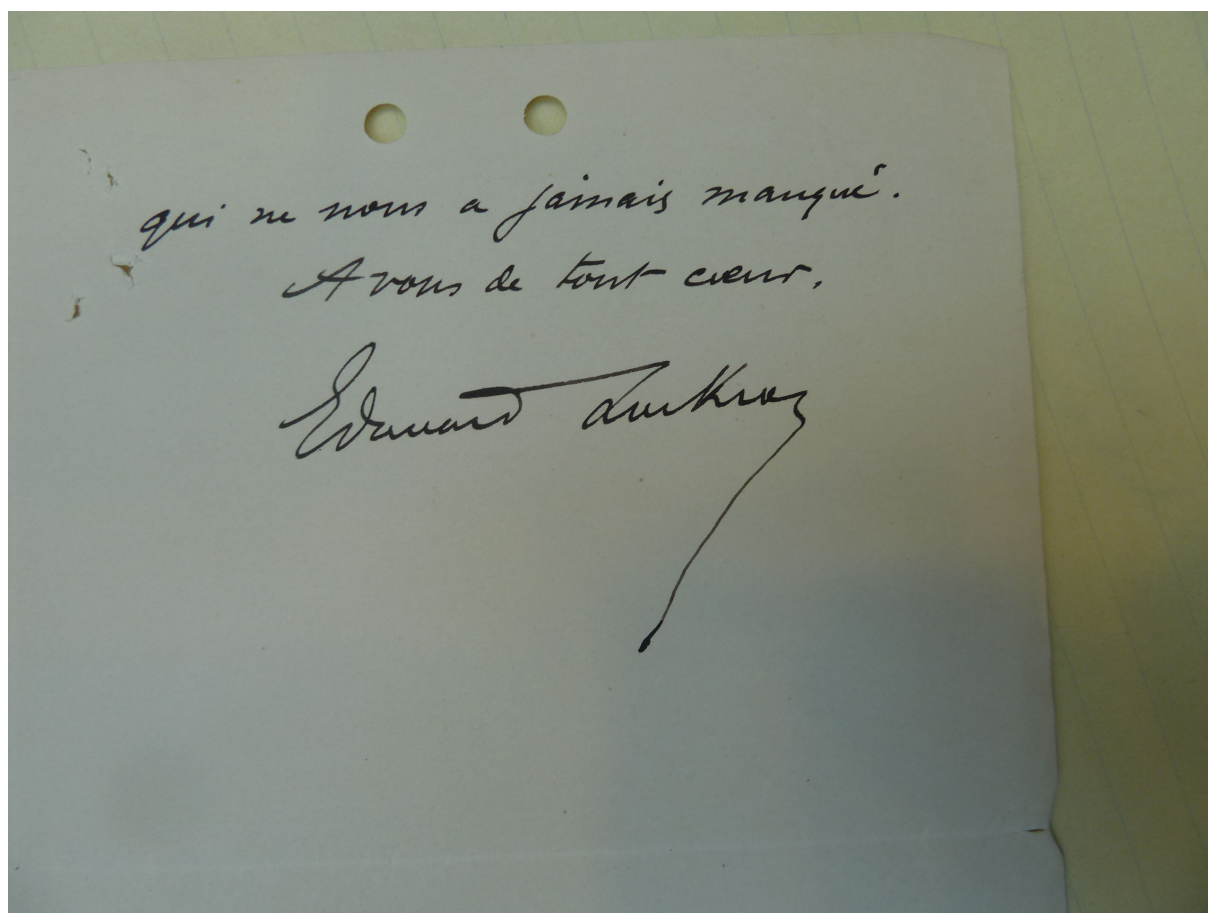 qui ne nous a jamais manqué.
A vous de tout cœur.
Edouard Lockroy